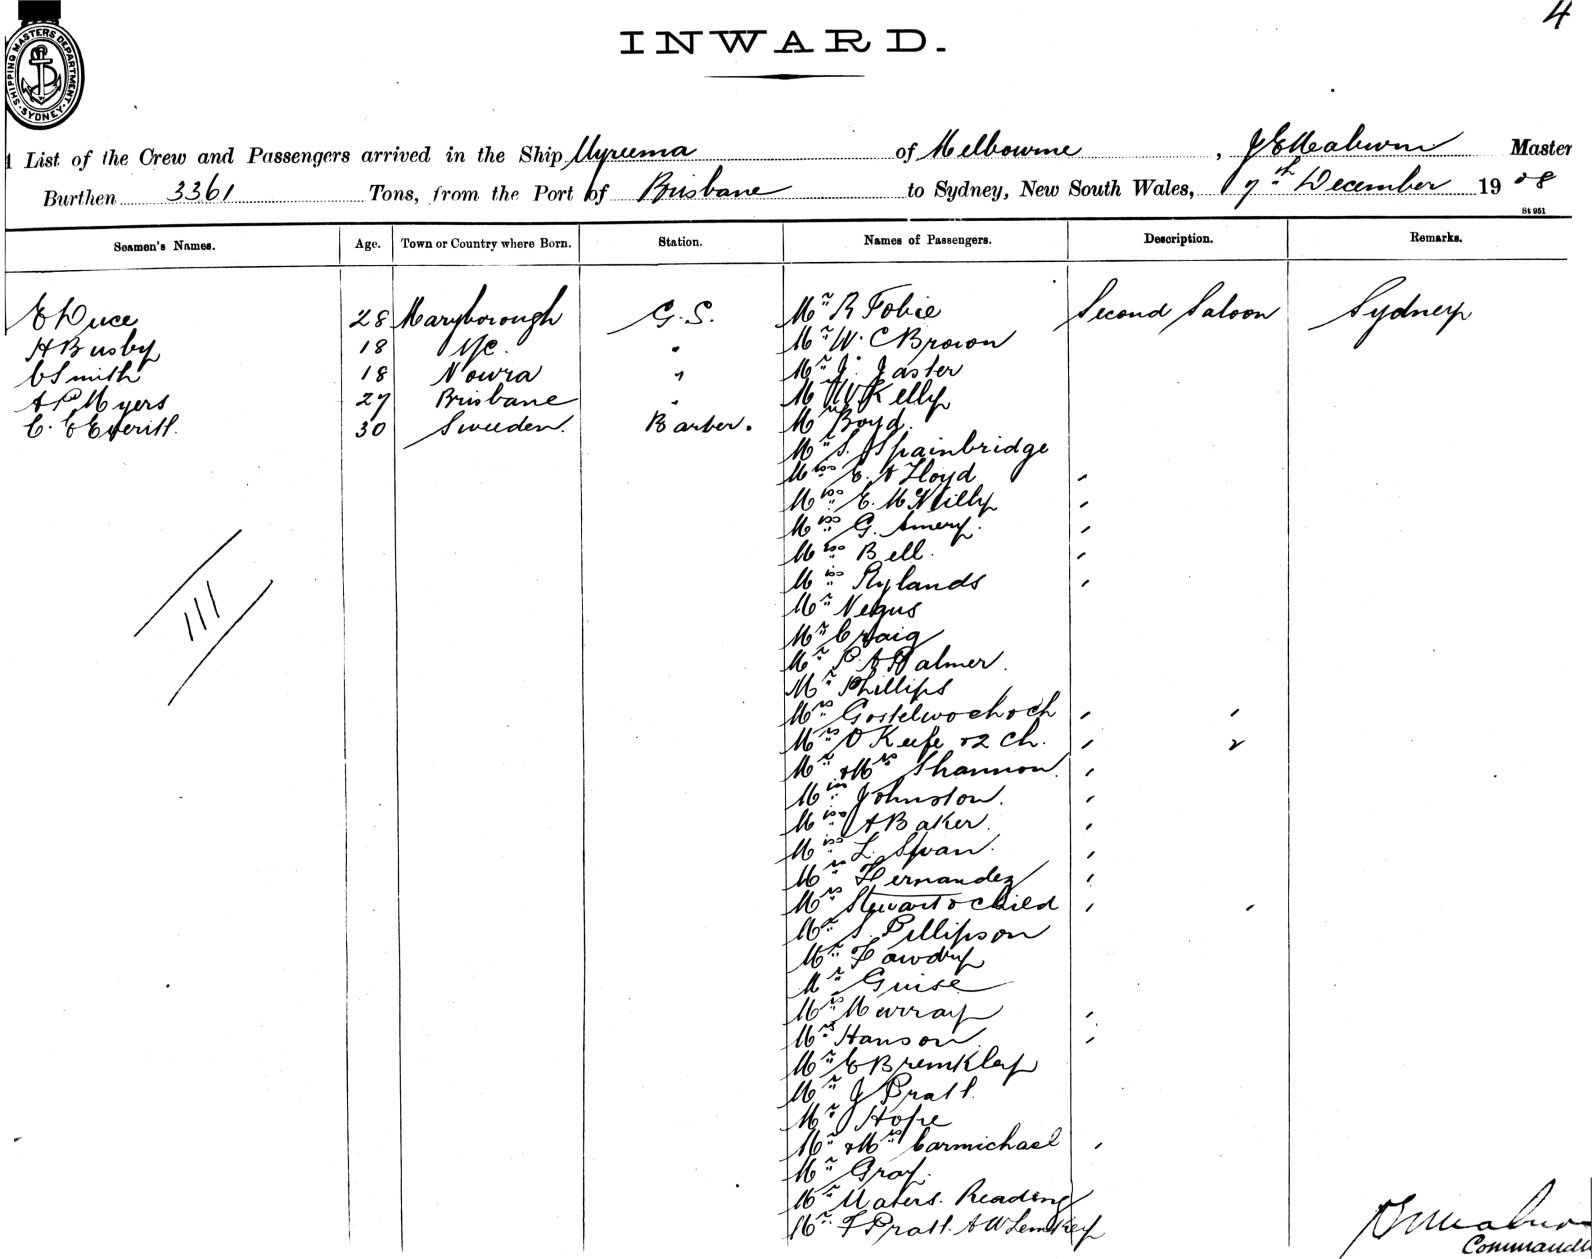 4
SHIPPING MASTERS DEPARTMENT. SYDNEY.
INWARD.
List of the Crew and Passengers arrived in the Ship Wyreema of Melbourne, Master
Burthen 3361 Tons, from the Port of Brisbane to Sydney, New South Wales, 7th December 1908
St 951
Seamen's Names. Age. Town or Country where Born. Station. Names of Passengers. Description. Remarks.
E Duce 28 Maryborough G.S. Mr R Fobie Second Saloon Sydney
H Busby 18 Vic. " Mr W. C Brown
C Smith 18 Nowra " Mr J. Jaster
A P Myers 27 Brisbane " Mr W Kelly
C. C Everitt. 30 Sweeden. Barber. Mr Boyd.
Mr S. Spainbridge
Miss E. A Lloyd
Miss E. McNeilly
Miss G. Amery.
Miss Bell.
Miss Rylands
Mr Negus
Mr Craig
Mr P. A Palmer.
Mr Phillips
Mrs & ch
Mrs O Keefe & 2 ch. 2
Mr & Mrs Shannon.
Miss Johnston.
Miss A Baker.
Miss L. Swan.
Mrs Hernandez
Mrs Stewart & child
Mr S. Pillipson
Mr Fawdry
Mr Guise
Mrs Murray
Mrs Hanson
Mr E Bremkley
Mr J Pratt.
Mr Hope
Mr & Mrs Carmichael
Mr Gray.
Mr Waters. Reading
Mr F Pratt. A W Lemkey
111